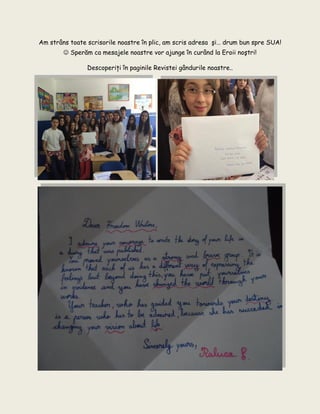 Am strâns toate scrisorile noastre în plic, am scris adresa și... drum bun spre SUA!
☺ Sperăm ca mesajele noastre vor ajunge în curând la Eroii noștri!
Descoperiți în paginile Revistei gândurile noastre..
Dear Freedom Writers,
I admire your courage to write the story of your life in
a diary that was published.
You proved yourselves as a strong and brave group. It is
known that each of us has a different way of expressing the
feelings but beyond doing this, you have put yourselves
in evidence and you have changed the world through your
works.
Your teacher, who has guided you towards your destiny
is a person who has to be admired, because she has succeeded in
changing your vision about life.
Sincerely yours,
Raluca